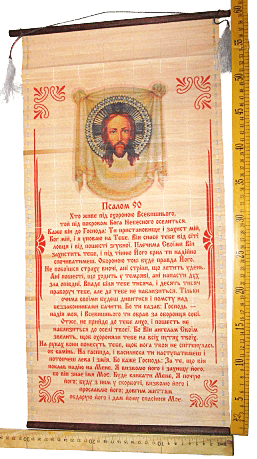 Псалом 90
Хто живе під охороною Всевишнього,
той під покровом Бога Небесного оселиться.
Каже він до Господа: Ти пристановище і захист мій,
Бог мій, і я уповаю на Тебе. Він спасе тебе від сіті
ловця і від пошесті згубної. Плечима Своїми Він
захистить тебе, і під тінню Його крил ти надійно
спочиватимеш. Обороною тобі буде правда Його.
Не побоїшся страху вночі, ані стріли, що летить удень.
Ані пошесті, що ходить у темряві, ані напасти духа
зла опівдні. Впаде біля тебе тисяча, і десять тисяч
праворуч тебе, але до тебе не наблизиться. Тільки
очима своїми будеш дивитися і помсту над
беззаконниками бачити. Бо ти казав: Господь —
надія моя, і Всевишнього ти обрав за охоронця собі.
Отже, не прийде до тебе лихо, і пошесть не
наблизиться до оселі твоєї. Бо Він ангелам Своїм
звелить, щоб охороняли тебе на всіх путях твоїх.
На руках вони понесуть тебе, щоб нога твоя не спіткнулась
об камінь. На аспида і василиска ти наступатимеш і
потопчеш лева і змія. Бо каже Господь: За те, що він
поклав надію на Мене, Я визволю його і захищу його,
бо він знає ім'я Моє. Буде кликати Мене, і почую
його; буду з ним у скорботі, визволю його і
прославлю його; довгим життям
обдарую його і дам йому спасіння Моє.